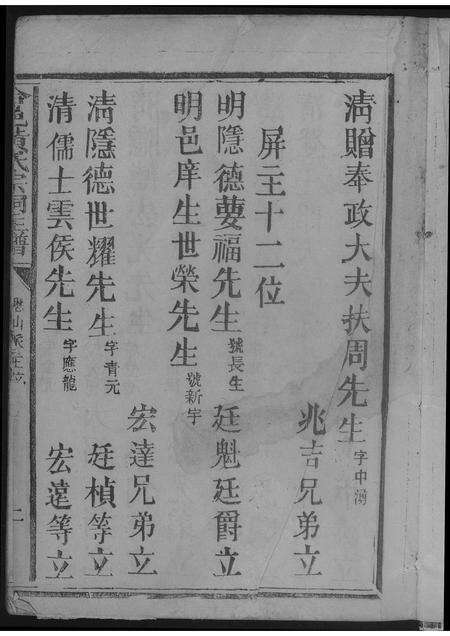 清贈奉政大夫扶周先生字中溥
兆吉兄弟立
屏主十二位
明隱德蔓福先生號長生 廷魁廷爵立
明邑庠生世榮先生號新宇
宏達兄弟立
清隱德世耀先生字青元 廷楨等立
清儒士雲侯先生字應龍 宏遠等立
氏宗祠主譜
山派主位
二